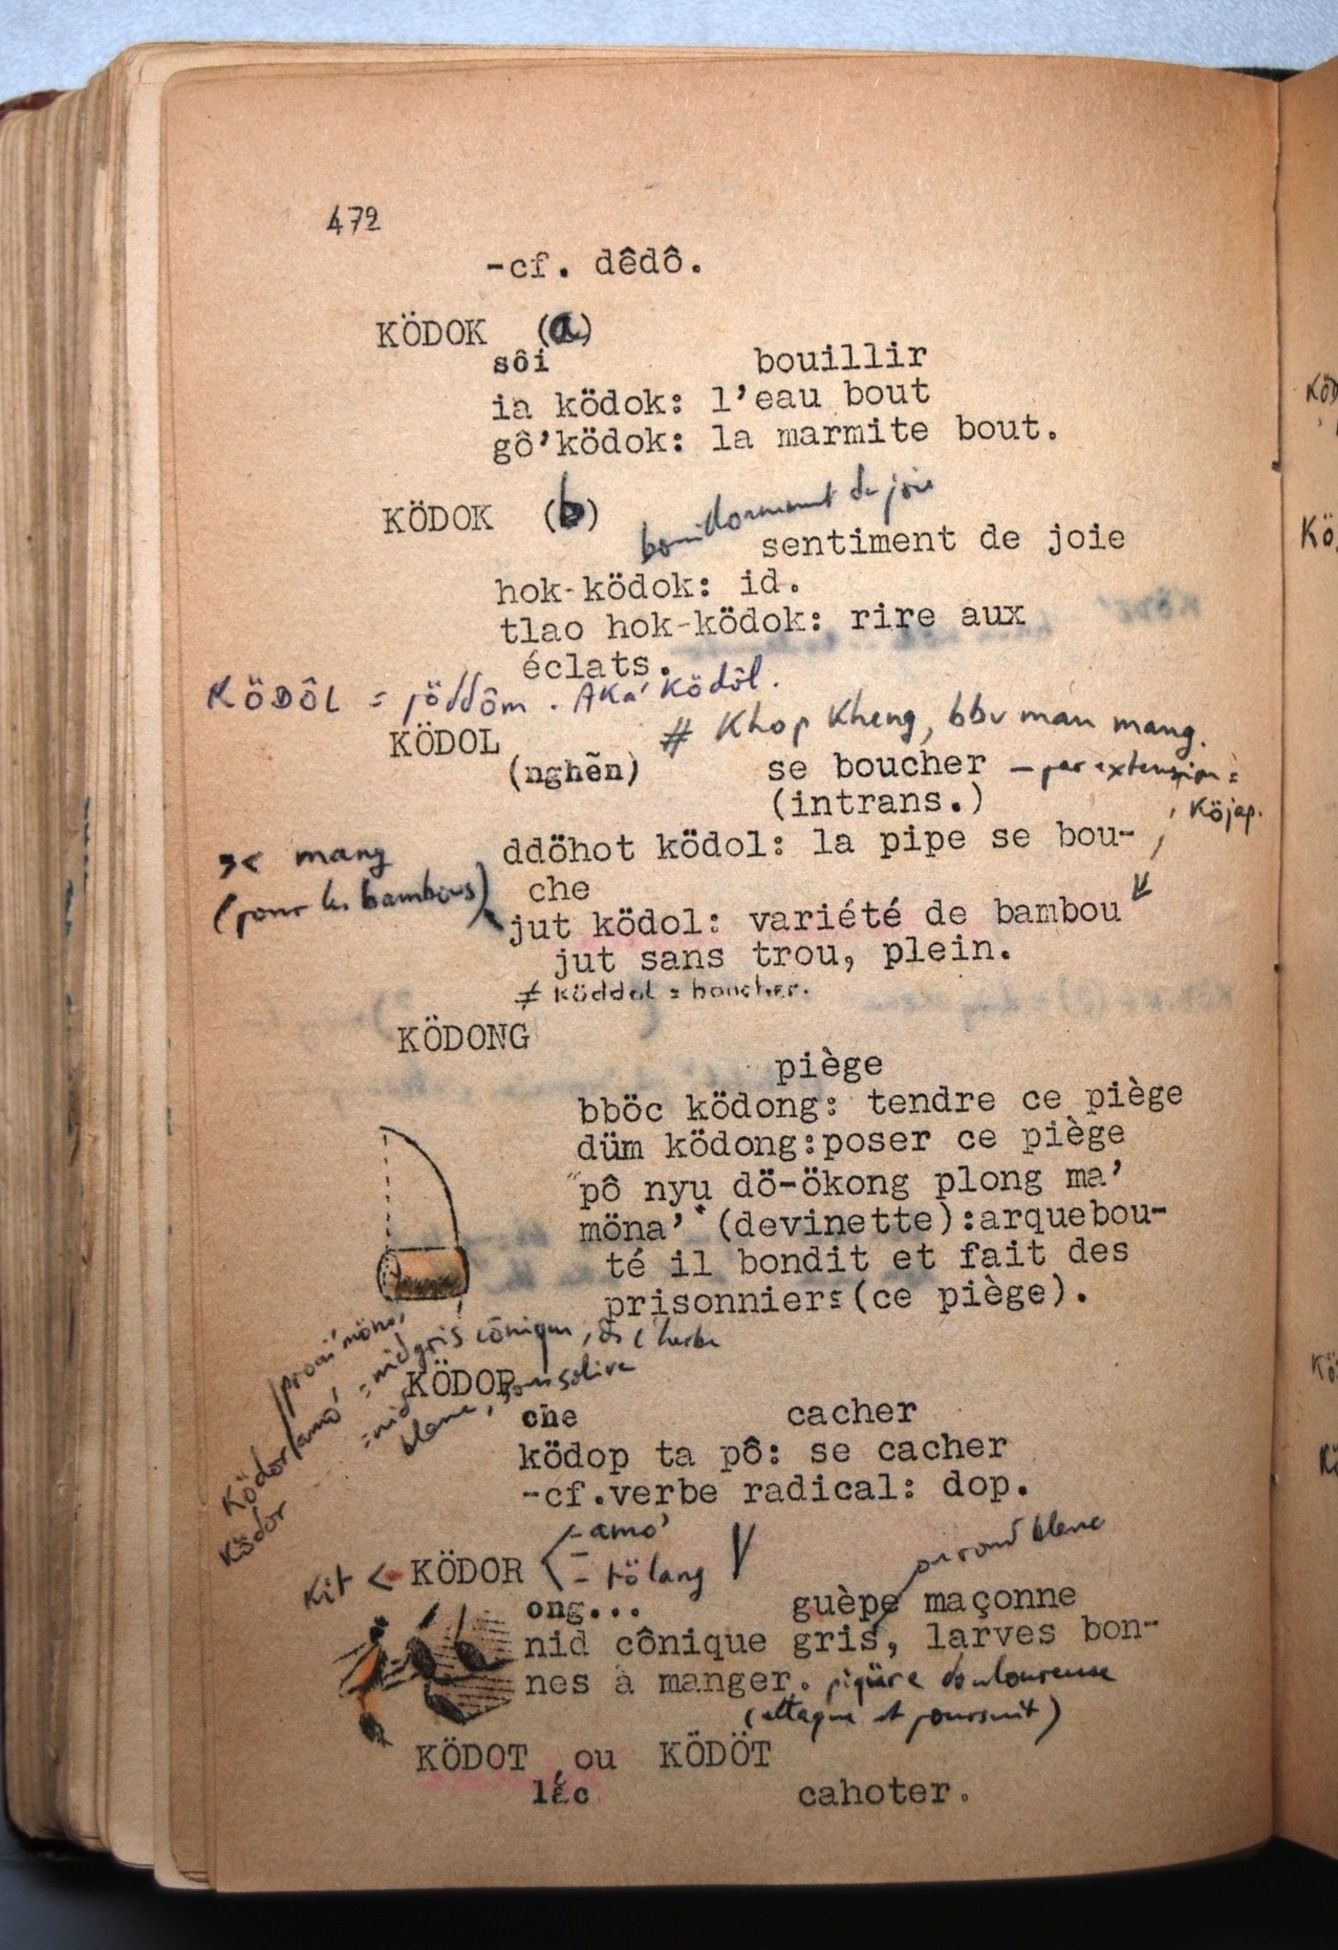 472
-cf. dêdô.
KÖDOK (a)
sôi bouillir
ia ködok: l'eau bout
gô'ködok: la marmite bout.
KÖDOK (b) bouillonnement de joie
sentiment de joie
hok-ködok: id.
tlao hok-ködok: rire aux
éclats.
KÖDÔL = jöddôm. Aka' ködôl.
KÖDOL # Khop Kheng, bbv man mang.
(nghẽn) se boucher - par extension =
(intrans.) Köjap.
ddöhot ködol: la pipe se bou-
>< mang
che
(pour les bambous)
jut ködol: variété de bambou
jut sans trou, plein.
≠ köddol = boucher.
KÖDONG
piège
bböc ködong: tendre ce piège
düm ködong:poser ce piège
"pô nyu dö-ökong plong ma'
möna'" (devinette):arquebou-
té il bondit et fait des
prisonniers(ce piège).
Ködor amo' = nid gris cônique, ds l'herbe
Ködor = nid blanc, sous solive
KÖDOP
che cacher
ködop ta pô: se cacher
-cf.verbe radical: dop.
- amo'
Kit < KÖDOR - tölang
ou rond blanc
ong... guèpe maçonne
nid cônique gris, larves bon-
nes à manger. piqüre douloureuse
(attaque et poursuit)
KÖDOT ou KÖDÖT
lắc cahoter.